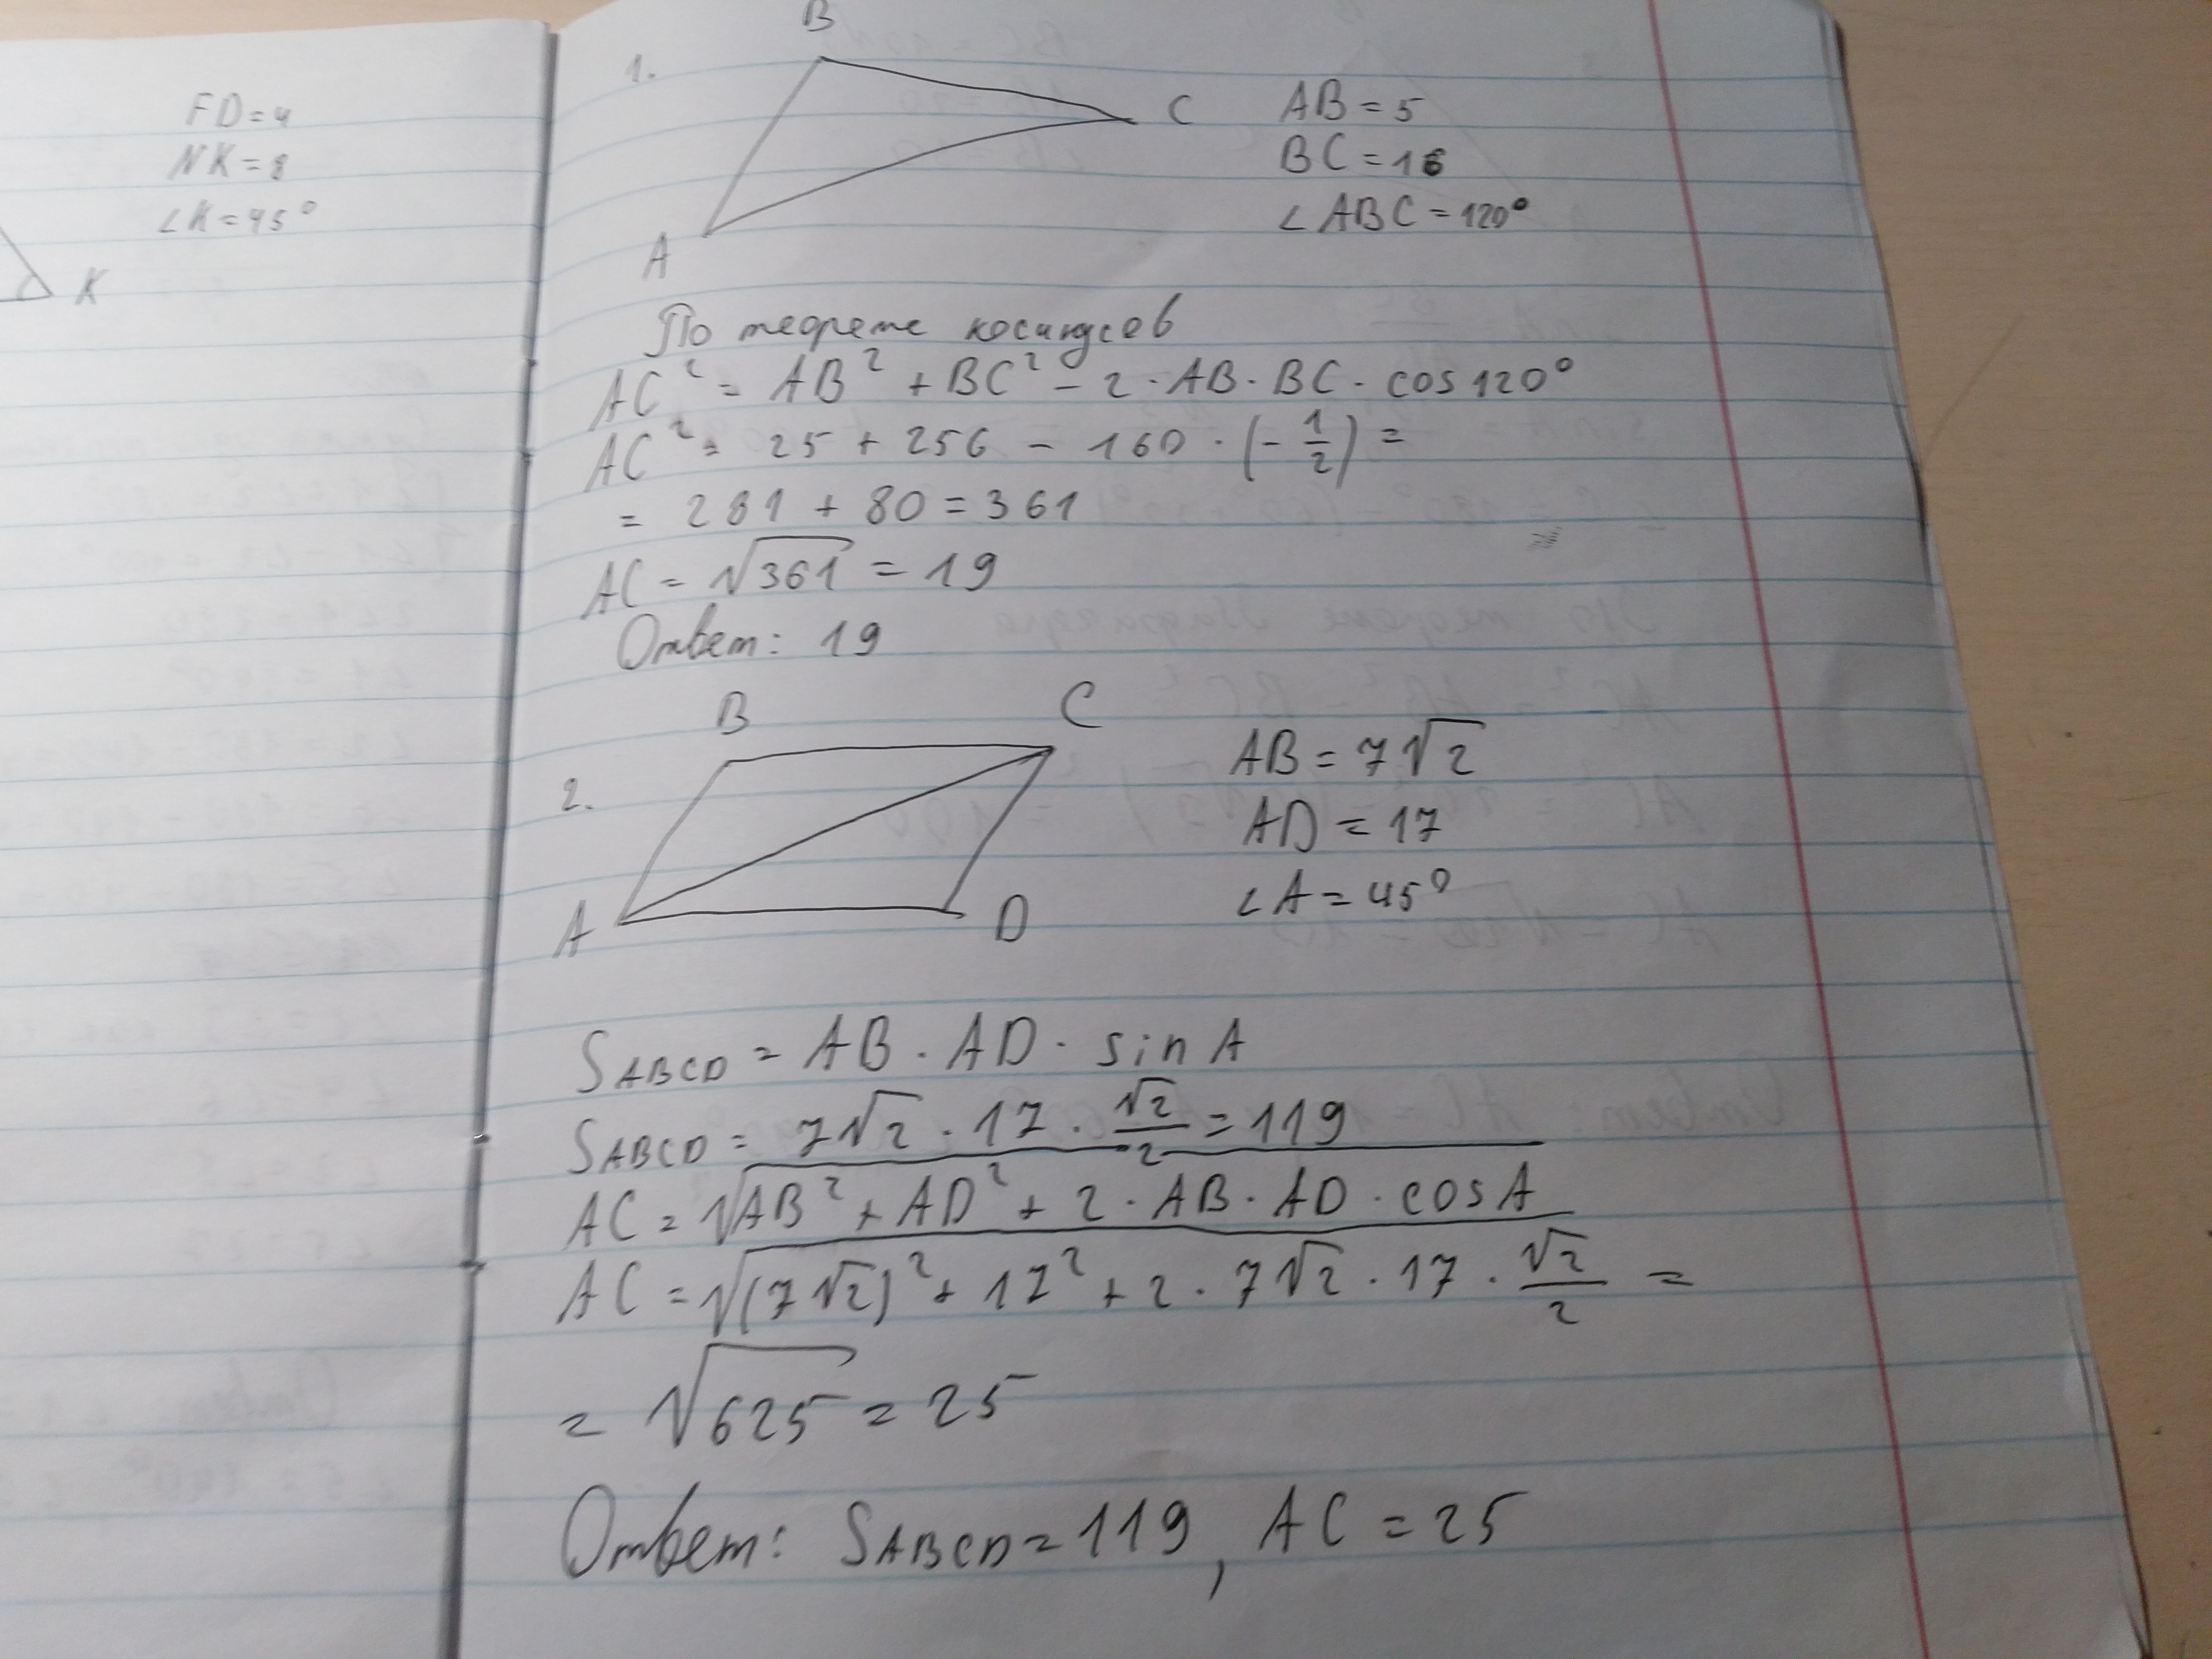 FD = 4
NK = 8
∠K = 45°
K
1.
B
C
A
AB = 5
BC = 16
∠ABC = 120°
По теореме косинусов
AC² = AB² + BC² - 2 · AB · BC · cos 120°
AC² = 25 + 256 - 160 · (-1/2) =
= 281 + 80 = 361
AC = √361 = 19
Ответ: 19
2.
B
C
A
D
AB = 7√2
AD = 17
∠A = 45°
SABCD = AB · AD · sin A
SABCD = 7√2 · 17 · √2/2 = 119
AC = √(AB² + AD² + 2 · AB · AD · cos A)
AC = √((7√2)² + 17² + 2 · 7√2 · 17 · √2/2) =
= √625 = 25
Ответ: SABCD = 119, AC = 25